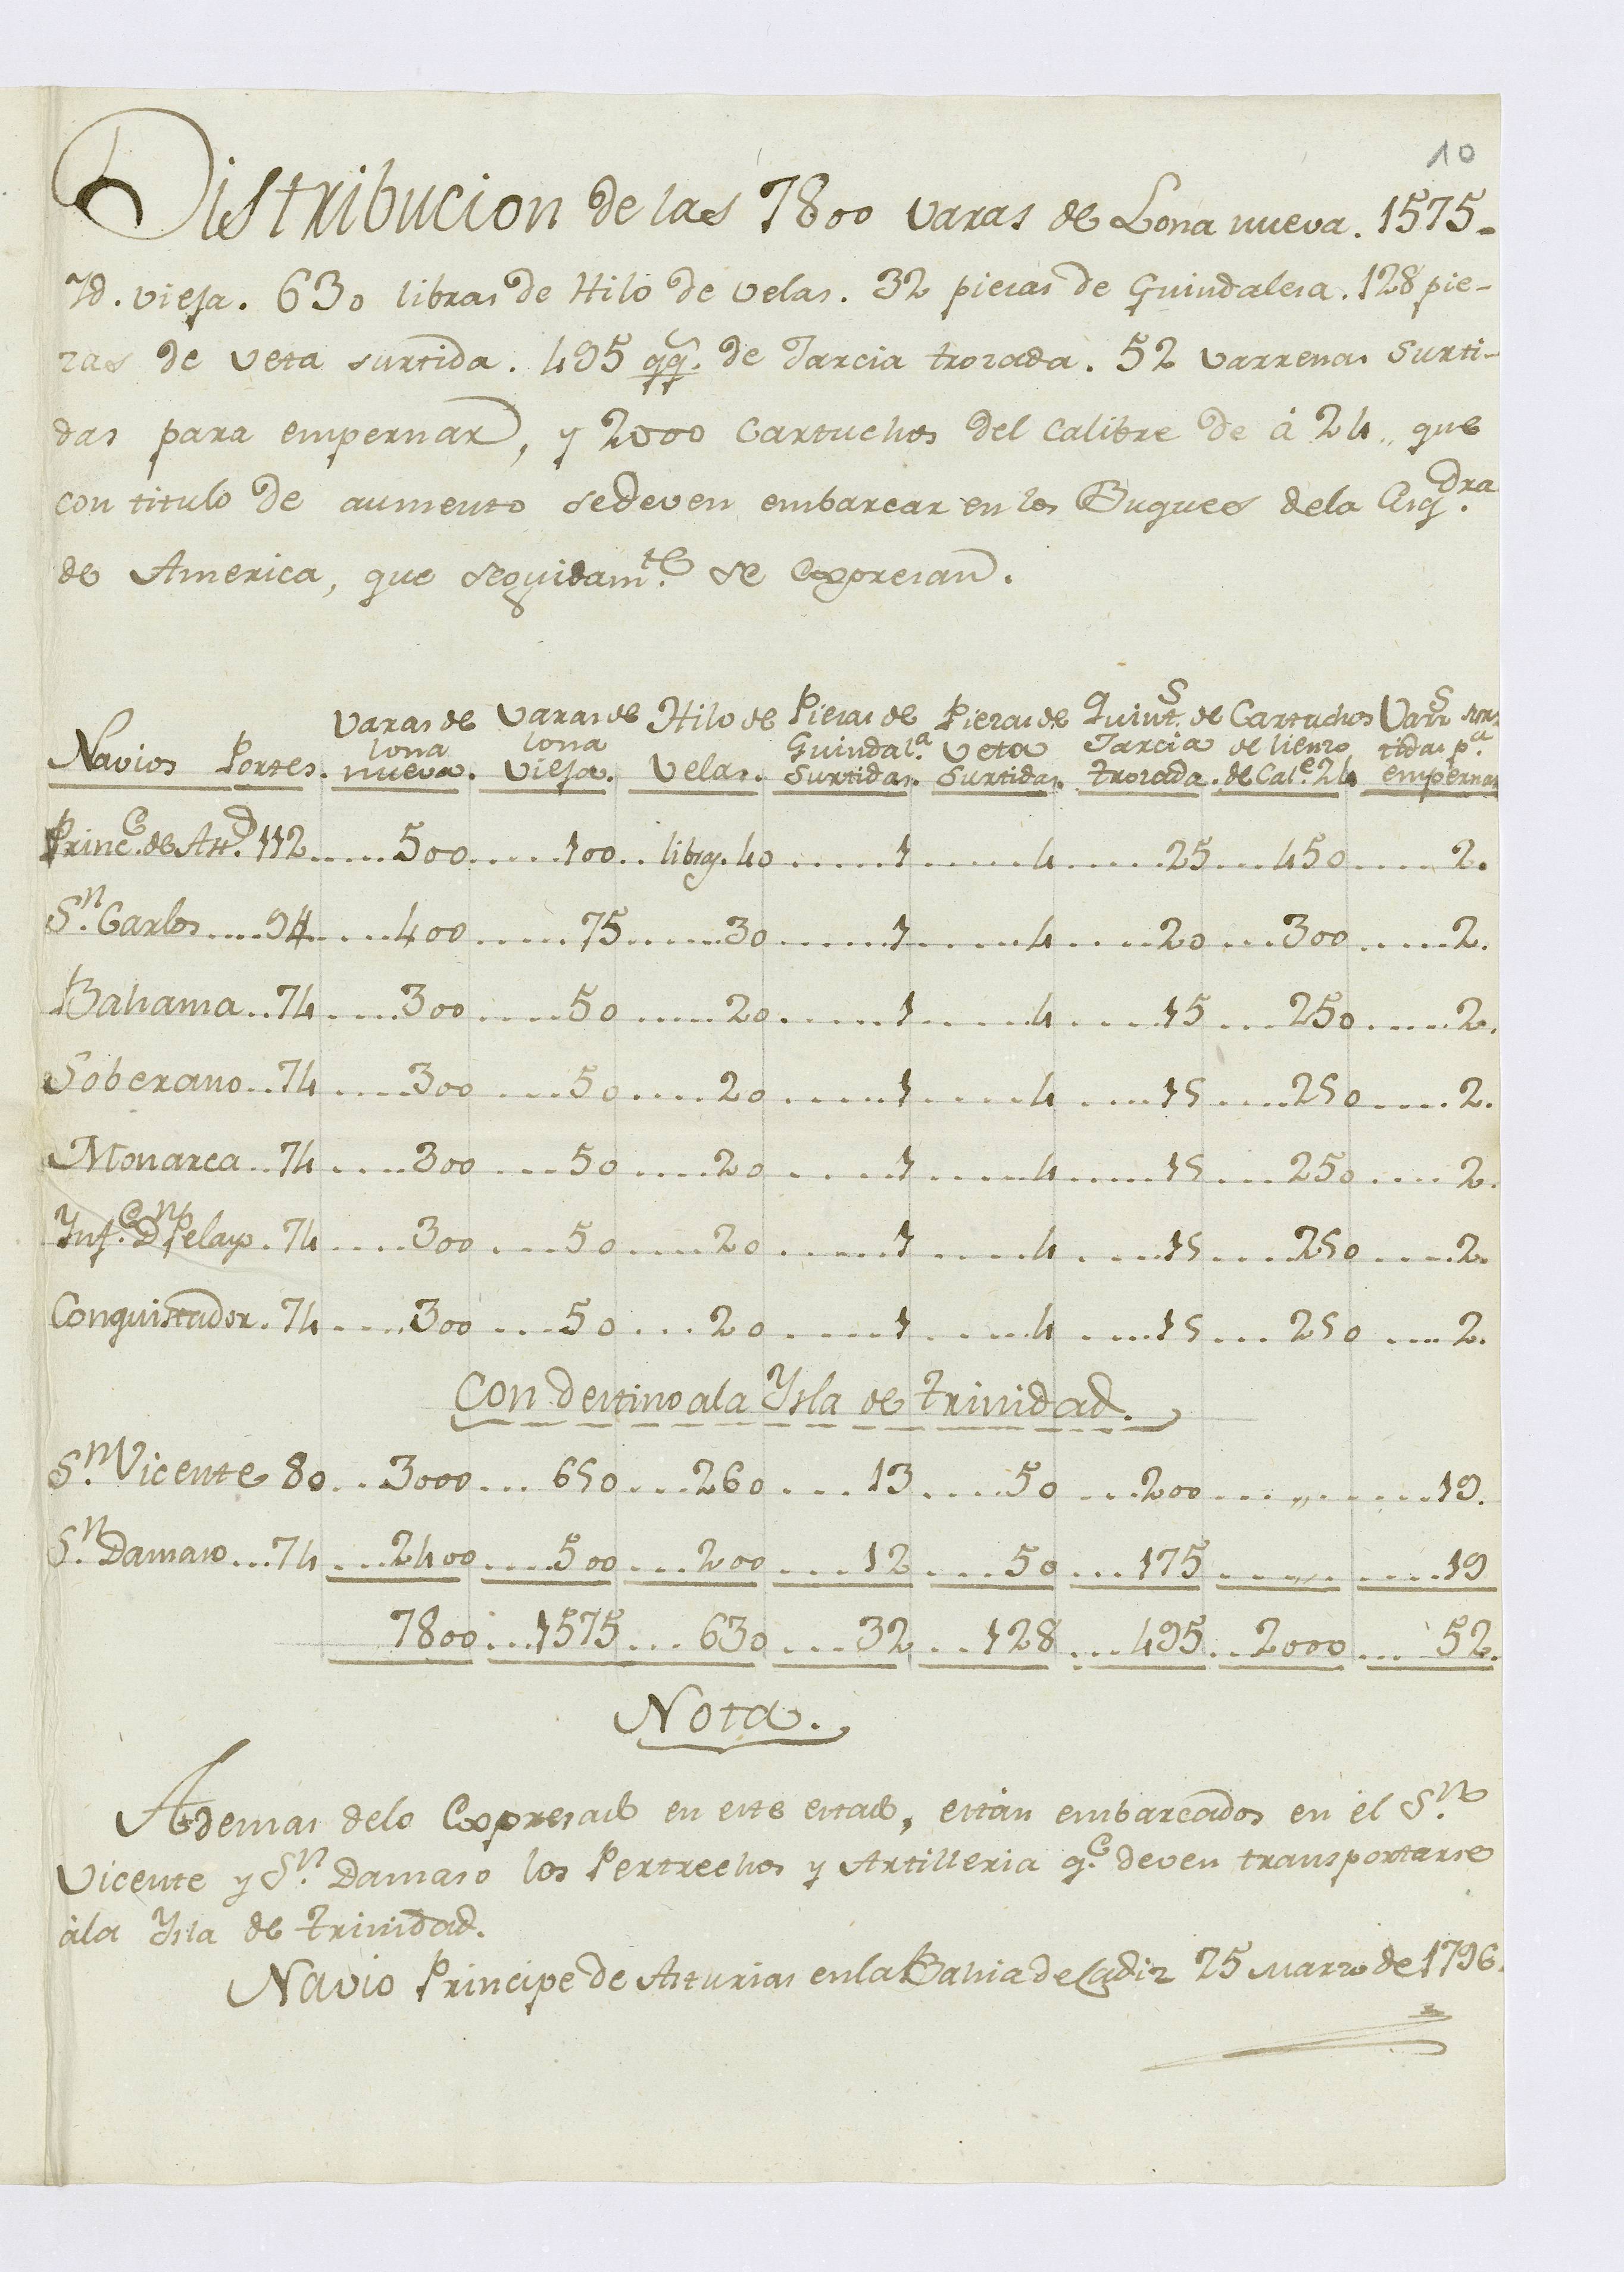 10
Distribucion de las 7800 varas de Lona nueva. 1575-
Yd. vieja. 630 libras de Hilo de velas. 32 piezas de Guindaleza. 128 pie-
zas de veta surtida. 495 qq.s de Jarcia trozada. 52 varrenas surti-
das para empernar, y 2000 cartuchos del calibre de á 24,, que
con titulo de aumento se deven embarcar en los Buques de la Esq.dra
de America, que seguidam.te se expresan.
Navios Portes. Varas de lona nueva. Varas de lona vieja. Hilo de Velas. Piezas de Guindal.a Surtidas. Piezas de Veta Surtidas. Quint.s de Jarcia trozada. Cartuchos de lienzo de Cal.e 24 Varr.s sur- tidas p.a empernar
Princ.e de Ast.s 112.....500.....100..libras.40.....1.....4.....25...450.....2.
S.n Carlos....94.....400.....75.....30.....1.....4.....20...300.....2.
Bahama..74.....300.....50.....20.....1.....4.....15...250.....2.
Soberano..74.....300....50....20.....1.....4....15....250....2.
Monarca..74.....300....50....20.....1.....4.....15...250....2.
Ynf.e D.n Pelayo.74.....300....50....20.....1.....4....15....250....2.
Conquistador.74.....300....50...20.....1.....4.....15...250....2.
Con destino a la Ysla de Trinidad.
S.n Vicente 80...3000...650...260....13....50...200....,,.....19.
S.n Damaso...74....2400....500....200....12....50...175....,,.....19
7800...1575...630....32...128...495..2000...52.
Nota.
Ademas de lo Expresado en este estado, están embarcados en el S.n
Vicente y S.n Damaso los Pertrechos y Artilleria q.e deven transportarse
á la Ysla de Trinidad.
Navio Principe de Asturias en la Bahia de Cadiz 25 Marzo de 1796.